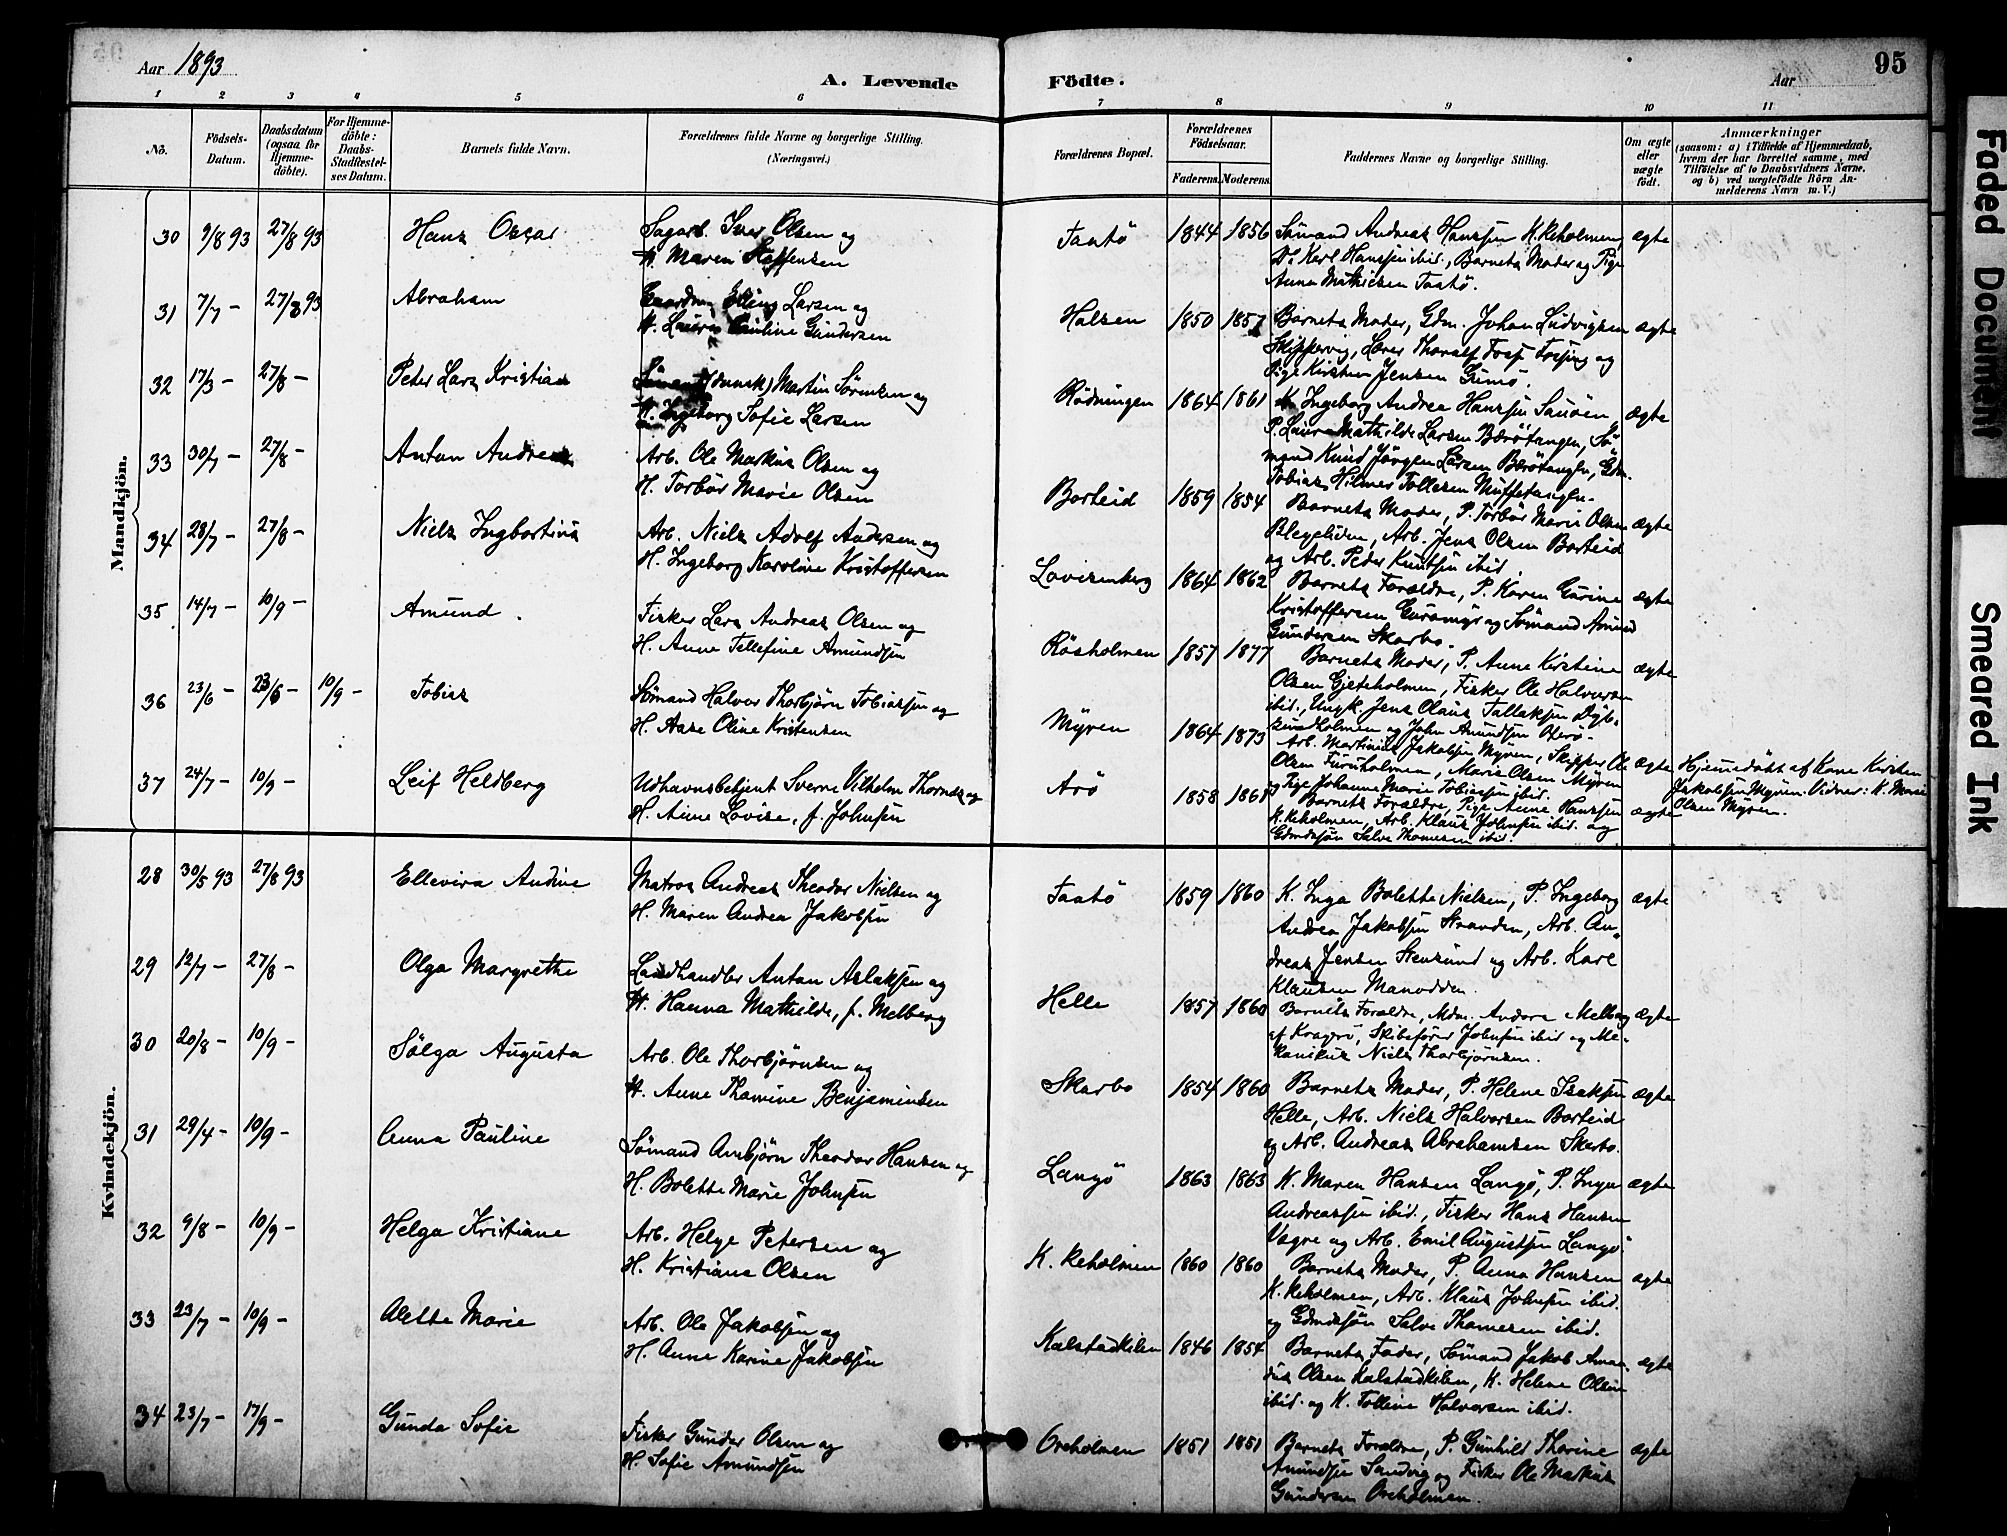 Aar 1893
A. Levende
Födte.
Aar
95
1 2 3 4 5 6 7 8 9 10 11
No.
Födsels-
Datum.
Daabsdatum
(ogsaa for
Hjemme-
döbte).
For Hjemme-
döbte:
Daabs-
Stadfæstel-
ses Datum.
Barnets fulde Navn.
Forældrenes fulde Navne og borgerlige Stilling.
(Næringsvei.)
Forældrenes Bopæl.
Forældrenes
Födselsaar.
Faderens. Moderens.
Faddernes Navne og borgerlige Stilling.
Om ægte
eller
uægte
födt.
Anmærkninger
(saasom: a) i Tilfælde af Hjemmedaab,
hvem der har forrettet samme, med
Tilföielse af to Daabsvidners Navne,
og b) ved uægtefödte Börn An-
melderens Navn m. V.)
Mandkjön.
30 9/8 93 27/8 93 Hans Oscar
Sagarb. Iver Olsen og
H. Maren Steffensen
Taatö 1844 1856
Sömand Andreas Hanssen K.keholmen,
Do Karl Hanssen ibid., Barnets Moder og Pige
Anna Mathiesen Taatö.
ægte
31 7/7 – 27/8 93 Abraham
Gaardm. Elling Larsen og
H. Laura Pauline Gundersen
Halsen 1850 1857
Barnets Moder, Gdm. Johan Ludvigsen
Skippervig, Lærer Thoralf Fossing og
Pige Kirsten Jensen Gumö.
ægte
32 17/3 – 27/8 – Peter Lars Kristian
Sömand (dansk) Martin Sörensen og
H. Ingeborg Sofie Larsen
Rödningen 1864 1861
K. Ingeborg Andrea Hanssen Sauöen
P. Laura Mathilde Larsen Berötangen, Sö
mand Knud Jörgen Larsen Berötangen, Gdm.
Tobias Hilmer Tollesen Muffetangen.
ægte
33 30/7 – 27/8 – Anton Andreas
Arb. Ole Markus Olsen og
H. Torbör Marie Olsen
Borteid 1859 1854
Barnets Moder, P. Torbör Marie Olsen
Blegeliden, Arb. Jens Olsen Borteid
og Arb. Peder Knutsen ibid.
ægte
34 28/7 – 27/8 – Niels Ingbortius
Arb. Niels Adolf Andersen og
H. Ingeborg Karoline Kristoffersen
Lovisenberg 1864 1862
Barnets Forældre, P. Karen Gurine
Kristoffersen og Sömand Amund
Gundersen Skarbo.
ægte
35 14/7 – 10/9 – Amund.
Fisker Lars Andreas Olsen og
H. Anne Tellefine Amundsen
Rösholmen 1857 1877
Barnets Moder, P. Anne Kirstine
Olsen Gjeteholmen, Fisker Ole Halvorsen
ibid., Ungk. Jens Olaus Tallaksen Dyb-
sundholmen og John Amundsen Oterö.
ægte
36 23/6 – 23/6 – 10/9 – Tobias
Sömand Halvor Thorbjörn Tobiassen og
H. Aase Oline Kristensen
Myren 1864 1873
Arb. Martinius Jakobsen Myren, Skipper Ole
Olsen Furuholmen, Marie Olsen Myren
og Pige Johanne Marie Tobiassen ibid.
ægte
Hjemmedöbt af Kone Kirsten
Jakobsen Myren. Vidner: K. Marie
Olsen Myren.
37 24/7 – 10/9 – Leif Heldberg
Udhavnsbetjent Sverre Vilhelm Thornes og
H. Anne Lovise, f. Johnsen
Arö 1858 1861
Barnets Forældre, Pige Anne Hanssen
K.keholmen, Arb. Klaus Johnsen ibid. og
Gdmdssön Salve Thomesen ibid.
ægte
Kvindekjön.
28 30/5 93 27/8 93 Ellevira Andine
Matros Andreas Theodor Nielsen og
H. Maren Andrea Jakobsen
Taatö 1859 1860
K. Inga Bolette Nielsen, P. Ingeborg
Andrea Jakobsen Stranden, Arb. An-
dreas Jensen Stensund og Arb. Karl
Klausen Manodden.
ægte
29 12/7 – 27/8 – Olga Margrethe
Landhandler Anton Aslaksen og
H. Hanna Mathilde, f. Melberg
Helle 1857 1860
Barnets Forældre, Mdm. Andora Melberg
af Kragerö, Skibsförer Johnsen ibid og Me-
kanikus Niels Thorbjörnsen.
ægte
30 20/8 – 10/9 – Sölga Augusta
Arb. Ole Thorbjörnsen og
H. Anne Thomine Benjaminsen
Skarbo 1854 1860
Barnets Moder, P. Helene Isaksen
Helle, Arb. Niels Halvorsen Borteid
og Arb. Andreas Abrahamsen Skarbo.
ægte
31 29/4 – 10/9 – Anna Pauline
Sömand Anbjörn Theodor Hansen og
H. Bolette Marie Johnsen
Langö 1863 1863
K. Maren Hansen Langö, P. Inga
Andreassen ibid., Fisker Hans Hansen
Vagre og Arb. Emil Augustsen Langö.
ægte
32 9/8 – 10/9 – Helga Kristiane
Arb. Helge Petersen og
H. Kristiane Olsen
K.keholmen 1860 1860
Barnets Moder, P. Anna Hansen
K.keholmen, Arb. Klaus Johnsen ibid.
og Gdmdssön Salve Thomesen ibid.
ægte
33 23/7 – 10/9 – Alette Marie
Arb. Ole Jakobsen og
H. Anne Karine Jakobsen
Kalstadkilen 1846 1854
Barnets Fader, Sömand Jakob Aman-
dus Olsen Kalstadkilen, K. Helene Olsen
ibid. og K. Tolline Halvorsen ibid.
ægte
34 23/7 – 17/9 – Gunda Sofie
Fisker Gunder Olsen og
H. Sofie Amundsen
Oreholmen 1851 1851
Barnets Forældre, P. Gunhild Thorine
Amundsen Sandvig og Fisker Ole Markus
Gundersen Oreholmen.
ægte
Faded Document
Smeared Ink